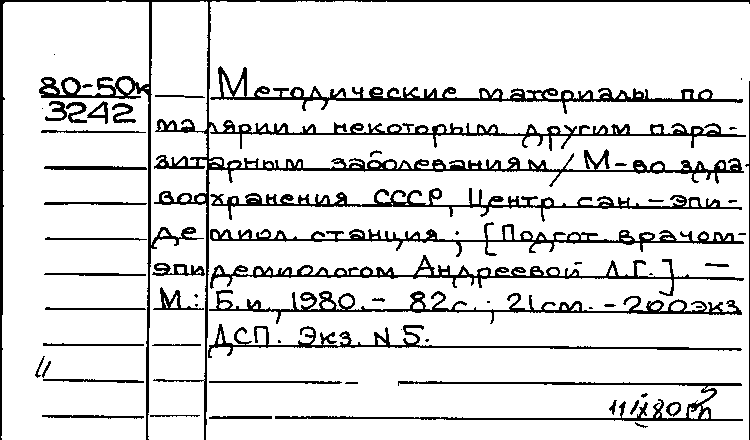 80-50к
3242
Методические материалы по
малярии и некоторым другим пара-
зитарным заболеваниям / М-во здра-
воохранения СССР, Центр. сан.-эпи-
демиол. станция; [Подгот. врачом-
эпидемиологом Андреевой Л.Г.]. –
М.: Б.и., 1980. – 82с.; 21см. – 200экз
ДСП. Экз. N 5.
11/IX80